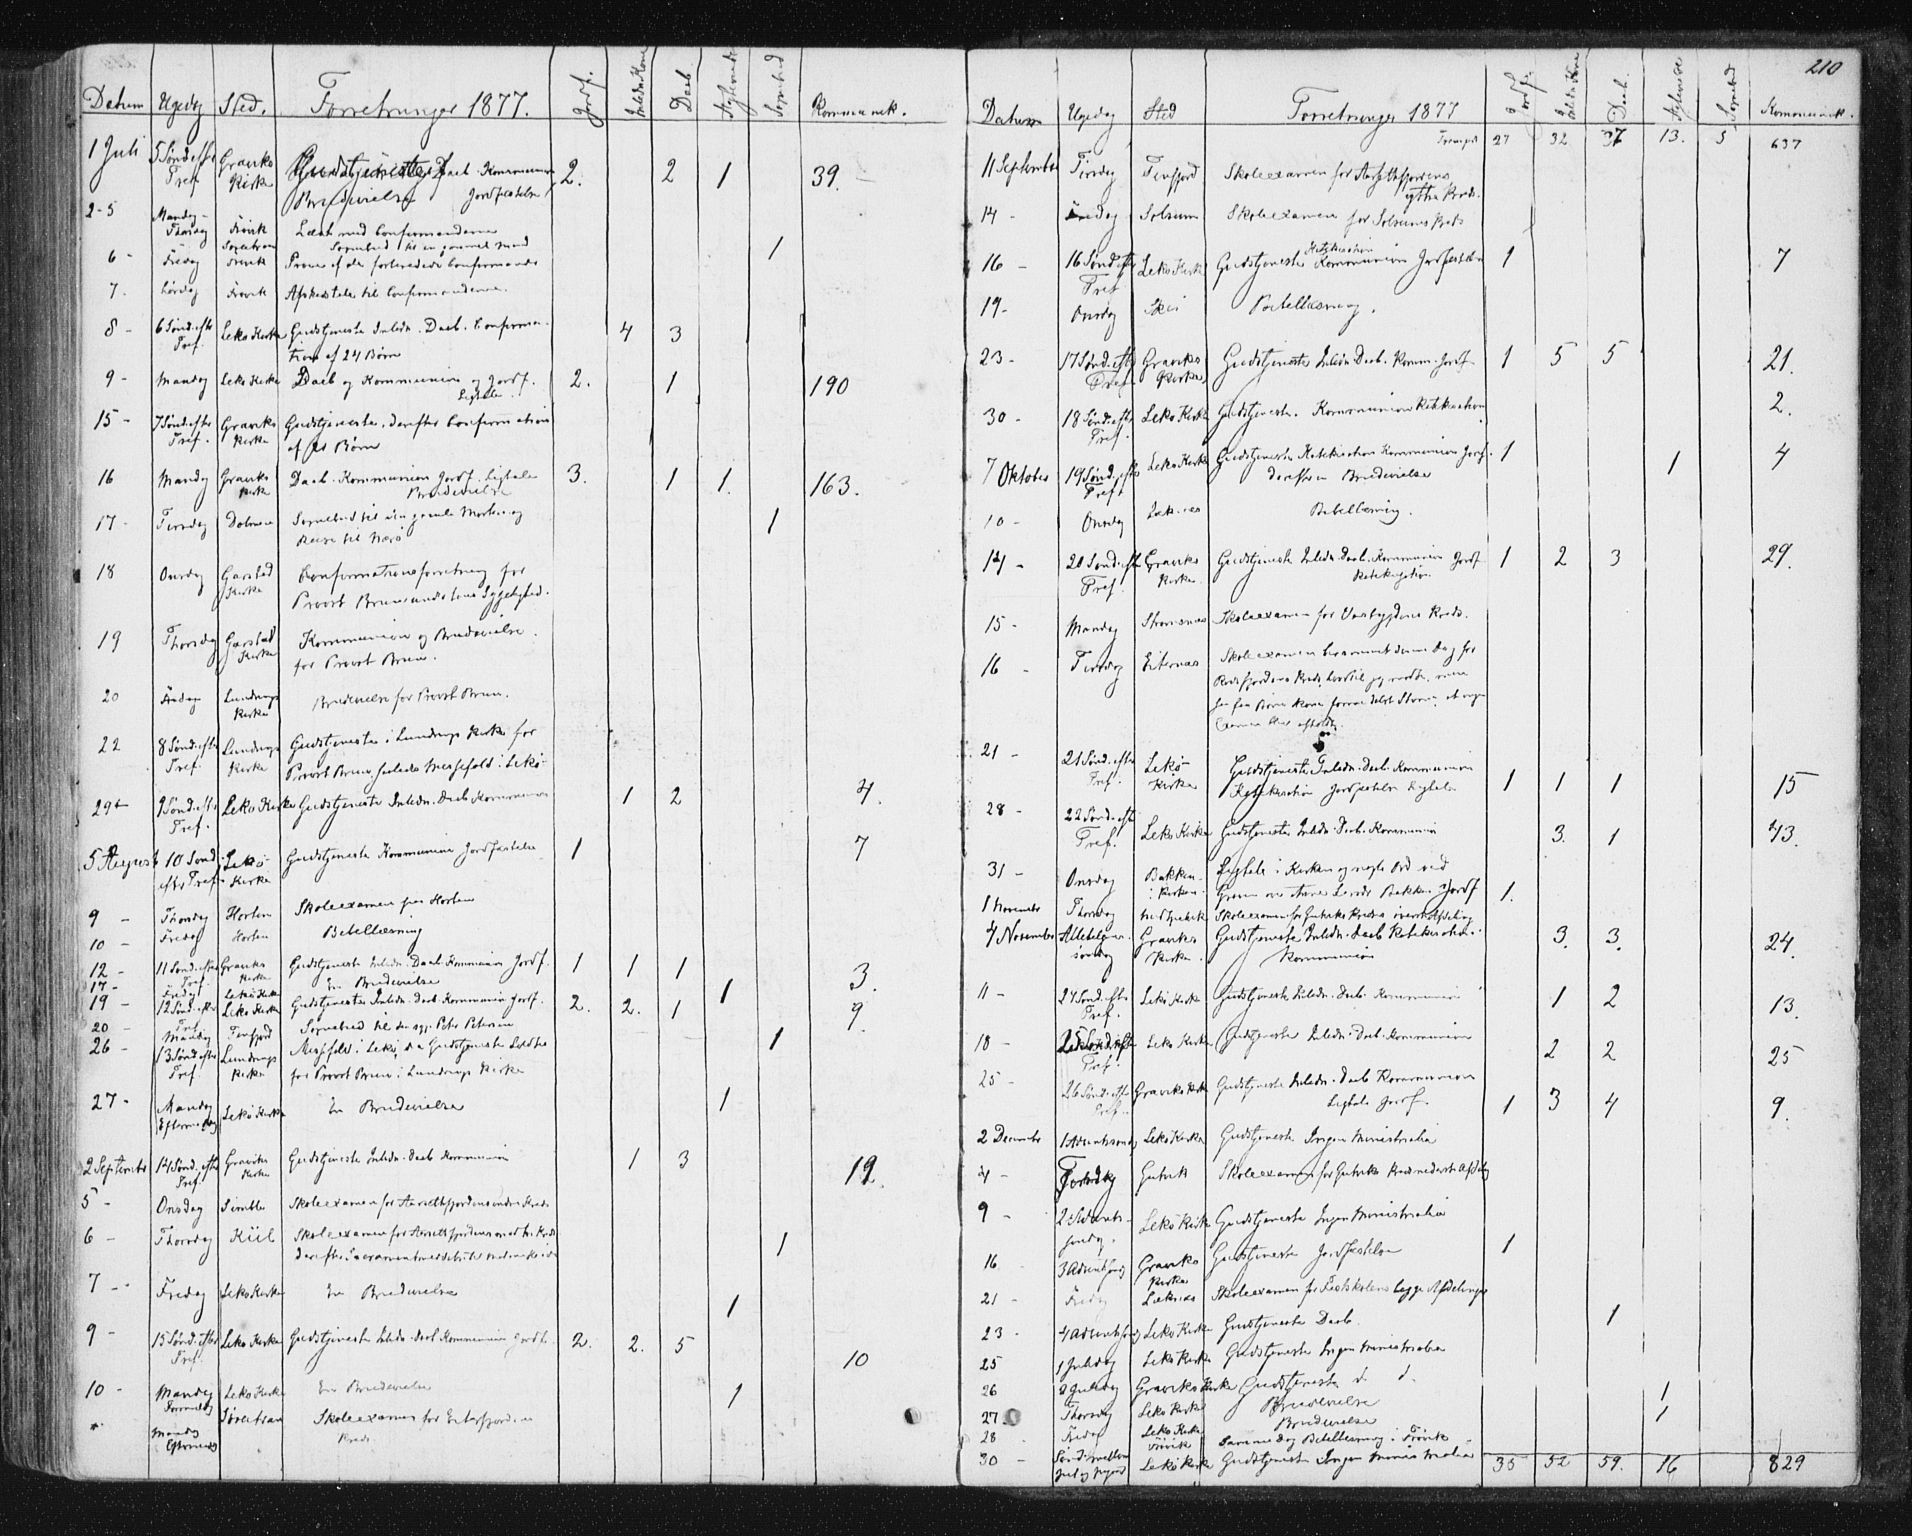 Datum Ugedag Sted. Forretninger 1877. Jordf. Daab. Kommunik.
1 Juli 5 Søndefter Tref. Graviks Kirke Gudstjeneste Daab. Kommunion Brudevielse Jordfæstelse 2. 2 1 39.
2-5 Mandag - Thorsdag Frövik Læst med Confirmanderne
Sognebud til en gammel Mand 1
6 - Fredag Frövik Prøve af de forberedede Confirmander
7. Lørdag Frövik Afskedstale til Confirmanderne.
8 - 6 Sønd. efter Tref. Lekö Kirke Gudstjeneste Inledn. Daab. Confirmation af 24 Børn 4 3
9 - Mandag Lekö Kirke Daab og Kommunion og Jordf. Ligtale. 2. 1 190
15 - 7 Sønd. efter Tref. Graviks Kirke Gudstjeneste, derefter Confirmation af Børn
16 Mandag Graviks Kirke Daab. Kommunion Jordf. Ligtale Brudevielse 3. 1 1. 163.
17 - Tirsdag Sognebud til den gamle Morten og Reise til Nærö 1
18 Onsdag Garstad Kirke Confirmationsforretning for Provst Bruns Sygelighed.
19 Thorsdag Garstad Kirke Kommunion og Brudevielse for Provst Brun.
20 Fredag Lundrings Kirke Brudevielse for Provst Brun.
22 8 Sønd. efter Tref. Lundrings Kirke Gudstjeneste i Lundrings Kirke for Provst Brun, Messefald i Lekö
29 9 Sønd. efter Tref. Lekö Kirke Gudstjeneste Inledn. Daab Kommunion 1 2 4.
5 August 10 Sønd. efter Tref. Lekö Kirke Gudstjeneste Kommunion Jordfæstelse 1 7
9 - Thorsdag Horten Skoleexamen paa Horten
10 - Fredag Horten Bibellæsning
12 - 11 Sønd. efter Tref. Graviks Kirke Gudstjeneste Inledn. Daab. Kommunion Jordf. 1 1 1 3.
17 - Fredag Lekö Kirke En Brudevielse 1
19 - 12 Sønd. efter Tref. Lekö Kirke Gudstjeneste Inledn. Daab. Kommunion Jordf. 2. 2. 1 9.
20 - Mandag Terfjord Sognebud til den syge Peter Petersen 1
26 - 13 Sønd. efter Tref. Lundrings Kirke Messefald i Lekö, da Gudstjeneste holdtes for Provst Brun i Lundrings Kirke
27 - Mandag Eftermiddag Lekö Kirke En Brudevielse 1
2 September 14 Sønd. efter Tref. Graviks Kirke Gudstjeneste Inledn. Daab Kommunion 1 3 12.
5 - Onsdag Simble Skoleexamen for Aarsetfjordens indre Kreds
6 - Thorsdag Kiil Skoleexamen for Aarsetfjordens Kreds 1
7 - Fredag Lekö Kirke En Brudevielse 1
9 - 15 Sønd. efter Tref. Lekö Kirke Gudstjeneste Inledn. Daab Kommunion Jordf. 2. 2. 5 10
10 - Mandag Formiddag Lekö Kirke En Brudevielse 1
Mandag Eftermiddag Skoleexamen for Eiterfjordens Kreds.
210
Datum Ugedag Sted Forretninger 1877 Jordf. Daab. Kommunik.
27 32 37 13. 5 637
11 September Tirsdag Terfjord Skoleexamen for Aarsetfjordens ytre Kreds.
14 - Fredag Solsem Skoleexamen for Solsems Kreds
16 - 16 Sønd. efter Tref. Lekö Kirke Gudstjeneste Katekisation Kommunion Jordfæstelse 1 7
19 - Onsdag Skei Bibellæsning.
23 - 17 Sønd. efter Tref. Graviks Kirke Gudstjeneste Inledn. Daab. Komm. Jordf. 1 5 5 21.
30 - 18 Sønd. efter Tref. Lekö Kirke Gudstjeneste. Kommunion Katekisation 2.
7 Oktober 19 Sønd. efter Tref. Lekö Kirke Gudstjeneste Katekisation Kommunion Jordf. Brudevielse 1 1 4
10 - Onsdag Bibellæsning.
14 - 20 Sønd. efter Tref. Graviks Kirke Gudstjeneste Inledn. Daab. Kommunion Jordf. Katekisation. 1 2 3 29.
15 - Mandag Strömsnes Skoleexamen for Kreds.
16 - Tirsdag Eiternes Skoleexamen berammet denne Dag for
Kreds, hvortil jeg mødte, men
21 - 21 Sønd. efter Tref. Lekö Kirke Gudstjeneste Inledn. Daab. Kommunion Katekisation Jordfæstelse Ligtale 1 1 1 15
28 - 22 Sønd. efter Tref. Lekö Kirke Gudstjeneste Inledn. Daab. Kommunion 3. 1 43.
31 - Onsdag Bakken i Kirken Ligtale i Kirken og nogle Ord ved Graven Bakken. Jordf 1.
1 November Thorsdag Skoleexamen for Gutviks Kreds
4 November Allehelgens søndag Graviks Kirke Gudstjeneste Inledn. Daab Katekisation. Kommunion 3. 3. 24.
11 - 24 Sønd. efter Tref. Lekö Kirke Gudstjeneste Inledn. Daab. Kommunion 1 2 13.
18 - 25 Sønd. efter Tref. Lekö Kirke Gudstjeneste Inledn. Daab. Kommunion 2 2 25
25 - 26 Sønd. efter Tref. Graviks Kirke Gudstjeneste Inledn. Daab Kommunion Ligtale Jordf. 1 3 4 9.
2 December 1 Adventssøndag Lekö Kirke Gudstjeneste Ingen Ministrialia
4 - Gutvik Skoleexamen for Gutviks Kreds nederste Afdeling
9 - 2 Advents søndag. Lekö Kirke Gudstjeneste Ingen Ministrialia
16 3 Adventssøndag Graviks Kirke Gudstjeneste Jordfæstelse 1
21 - Fredag Leknes Skoleexamen for Fastskolens begge Afdelinger
23 - 4 Adventssøndag Lekö Kirke Gudstjeneste Daab. 1
25 1 Juledag Lekö Kirke Gudstjeneste Ingen Ministrialia
26 2 Juledag Graviks Kirke Gudstjeneste d. d.
27 Thorsdag Lekö Kirke Brudevielse 1
28 Fredag Lekö Kirke Brudevielse 1
Frövik Samme Dag Bibellæsning i Frövik
30 - Sønd. mellem Jul og Nyaar Lekö Kirke Gudstjeneste Ingen Ministrialia
35 52 59. 16 829